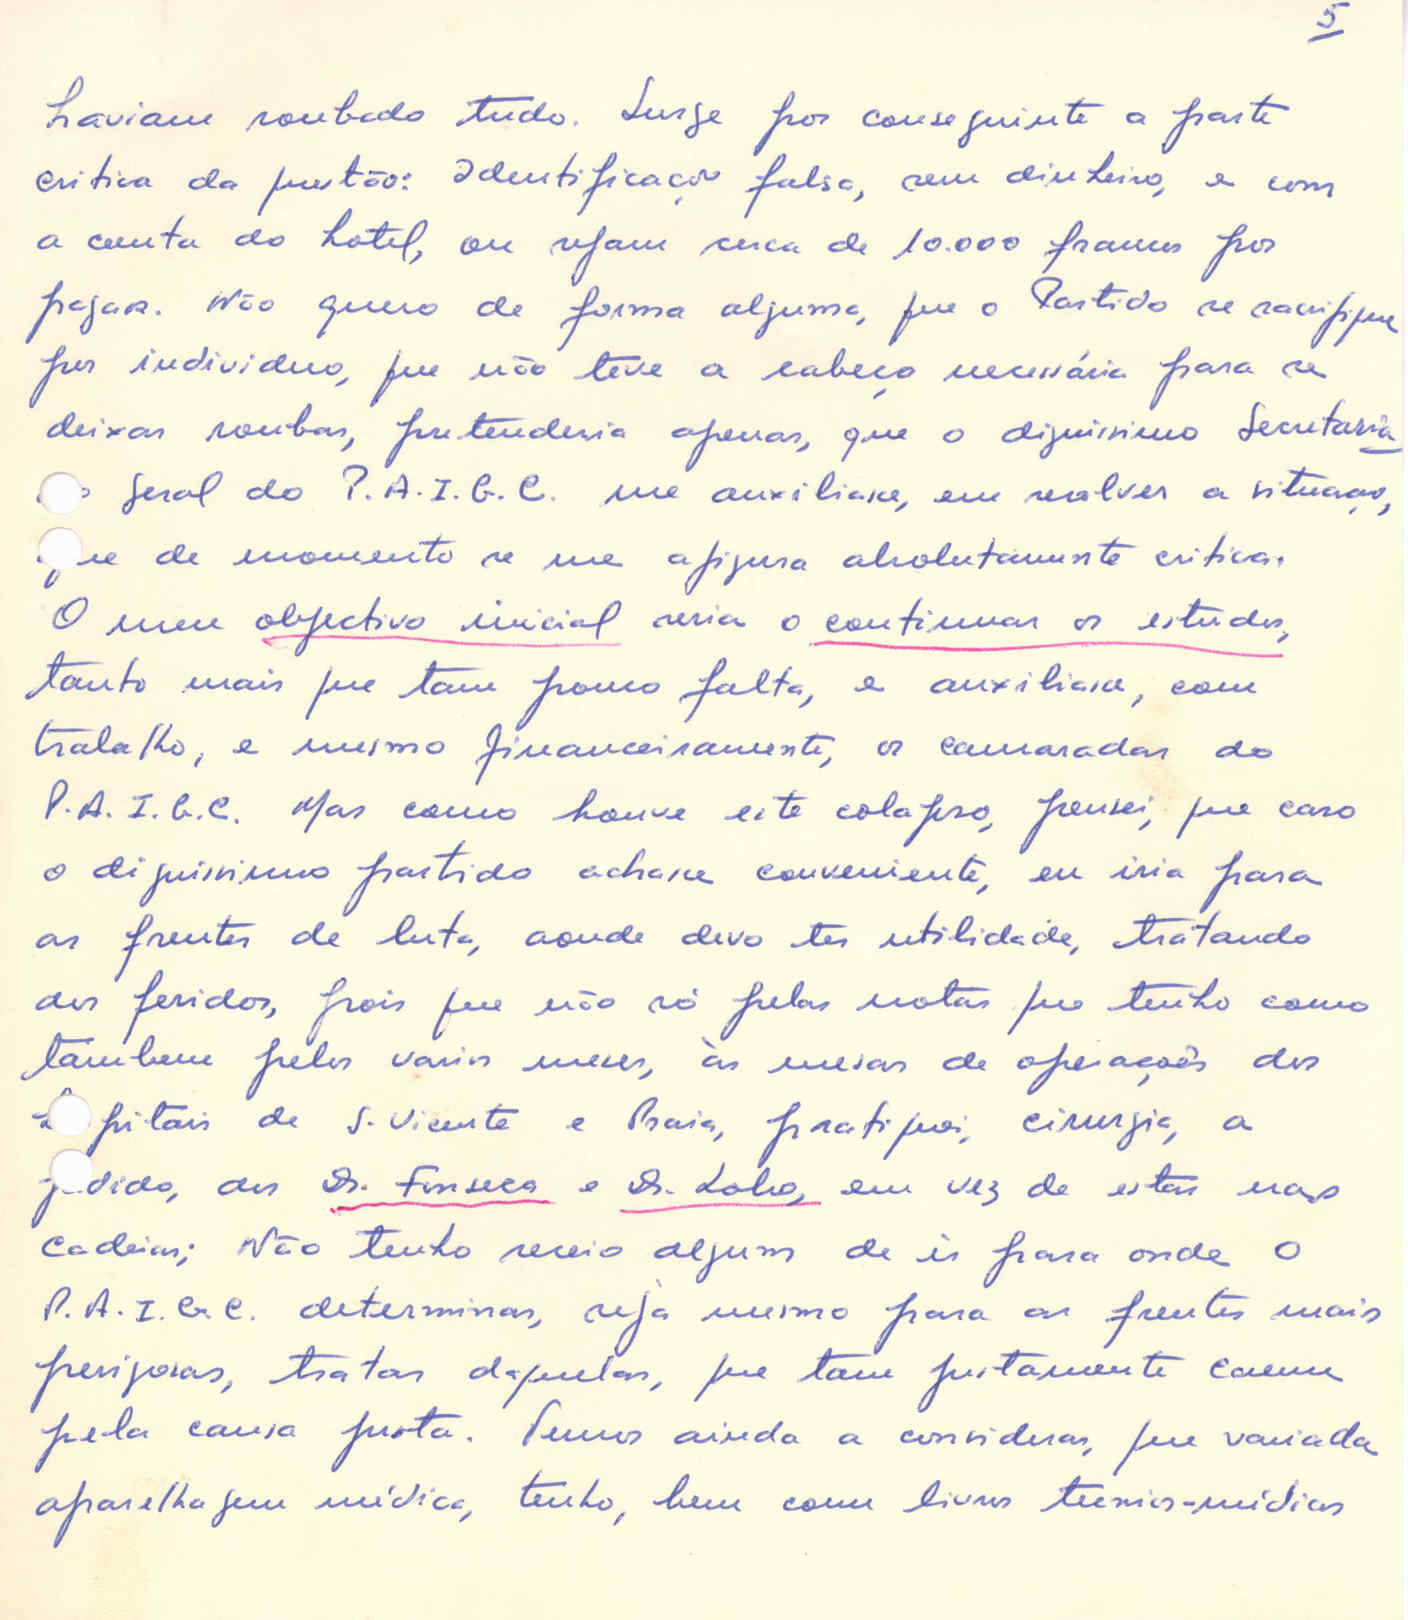 5
haviam roubado tudo. Surge por conseguinte a parte
critica da questão: Identificação falsa, sem dinheiro, e com
a conta do hotel, ou sejam cerca de 10.000 francos por
pagar. Não quero de forma alguma, que o Partido se sacrifique
por individuo, que não teve a cabeça necessária para se
deixar roubar, pretenderia apenas, que o dignissimo Secretaria
Geral do P.A.I.G.C. me auxiliasse, em resolver a situação,
que de momento se me afigura absolutamente critica.
O meu objectivo inicial seria o continuar os estudos,
tanto mais que tam pouco falta, e auxiliasse, com
trabalho, e mesmo financeiramente, os camaradas do
P.A.I.G.C. Mas como houve este colapso, pensei, que caso
o dignissimo partido achasse conveniente, eu iria para
as frentes de luta, aonde devo ter utilidade, tratando
dos feridos, pois que não só pelas notas que tenho como
tambem pelos varios meses, às mesas de operações dos
hospitais de S. Vicente e Praia, pratiquei, cirurgia, a
pedido, dos Dr. Fonseca e Dr. Lobo, em vez de estar nas
cadeias; Não tenho receio algum de ir para onde O
P.A.I.G.C. determinar, seja mesmo para as frentes mais
perigosas, tratar daqueles, que tam justamente caem
pela causa justa. Temos ainda a considerar, que variada
aparelhagem médica, tenho, bem como livros tecnico-médicos